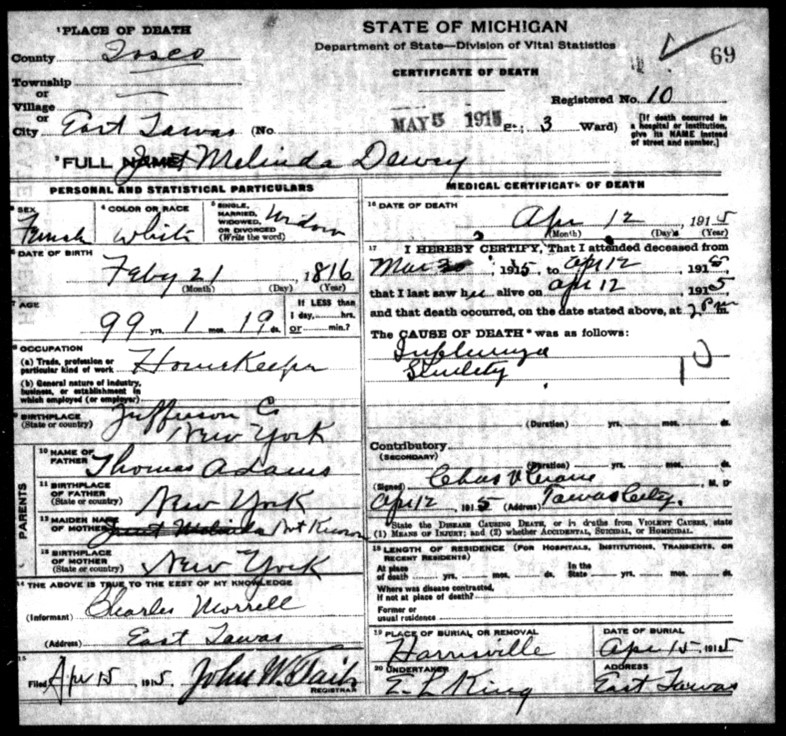 STATE OF MICHIGAN
Department of State—Division of Vital Statistics
CERTIFICATE OF DEATH
69
¹PLACE OF DEATH
County Iosco
Township
or
Village
or
City East Tawas (No. St.; 3 Ward)
Registered No. 10
MAY 5 1915
[If death occurred in a hospital or institution, give its NAME instead of street and number.]
²FULL NAME Melinda Dewey
PERSONAL AND STATISTICAL PARTICULARS
3 SEX
Female
4 COLOR OR RACE
White
5 SINGLE, MARRIED, WIDOWED, OR DIVORCED (Write the word)
Widow
6 DATE OF BIRTH
Feby 21 1816
(Month) (Day) (Year)
7 AGE
99 yrs. 1 mos. 19 ds.
If LESS than 1 day,....hrs. or....min.?
8 OCCUPATION
(a) Trade, profession or particular kind of work Housekeeper
(b) General nature of industry, business, or establishment in which employed (or employer)
9 BIRTHPLACE
(State or country)
Jefferson Co
New York
PARENTS
10 NAME OF FATHER
Thomas Adams
11 BIRTHPLACE OF FATHER
(State or country)
New York
12 MAIDEN NAME OF MOTHER
Not Known
13 BIRTHPLACE OF MOTHER
(State or country)
New York
14 THE ABOVE IS TRUE TO THE BEST OF MY KNOWLEDGE
(Informant) Charles Morrell
(Address) East Tawas
15
Filed Apr 15, 1915 John W. 
REGISTRAR
MEDICAL CERTIFICATE OF DEATH
16 DATE OF DEATH
Apr 12, 1915
(Month) (Day) (Year)
17 I HEREBY CERTIFY, That I attended deceased from
Mar 1915, to Apr 12 1915
that I last saw her alive on Apr 12 1915
and that death occurred, on the date stated above, at 2 Pm m.
The CAUSE OF DEATH* was as follows:
(Duration) yrs. mos. ds.
Contributory
(SECONDARY)
(Duration) yrs. mos. ds.
(Signed) Chas M. D
Apr 12, 1915 (Address) Tawas City.
*State the DISEASE CAUSING DEATH, or in deaths from VIOLENT CAUSES, state
(1) MEANS OF INJURY; and (2) whether ACCIDENTAL, SUICIDAL, or HOMICIDAL.
18 LENGTH OF RESIDENCE (FOR HOSPITALS, INSTITUTIONS, TRANSIENTS, OR RECENT RESIDENTS)
At place of death yrs. mos. ds. In the State yrs. mos. ds.
Where was disease contracted, If not at place of death?
Former or usual residence
19 PLACE OF BURIAL OR REMOVAL
Harrisville
DATE OF BURIAL
Apr 15, 1915
20 UNDERTAKER
E. L King
ADDRESS
East Tawas